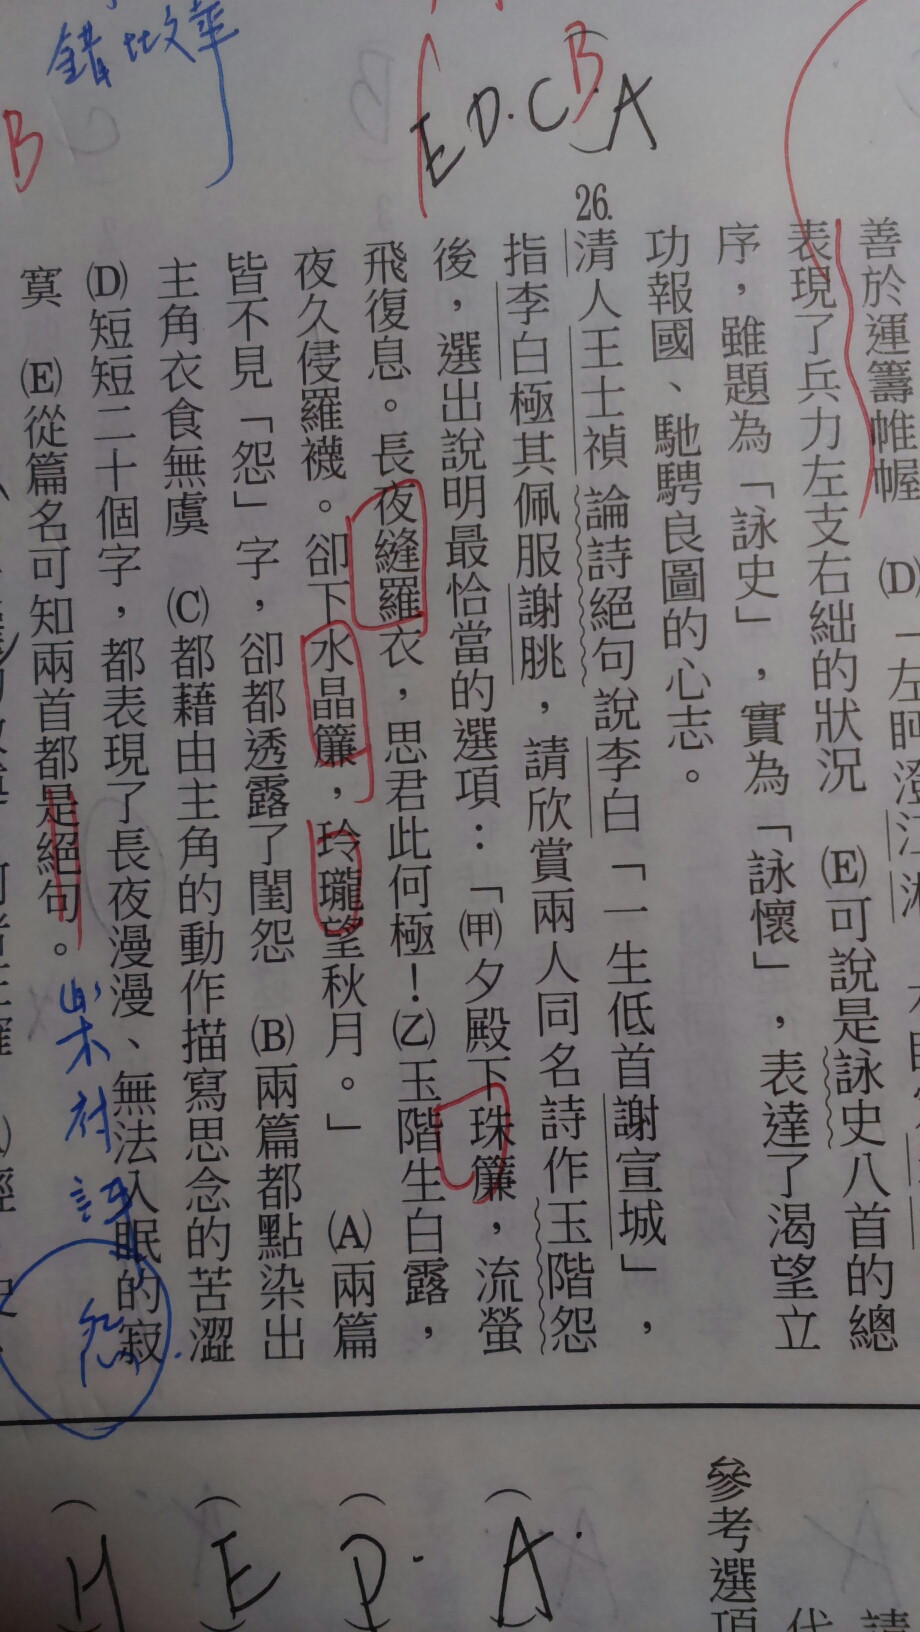 善於運籌帷幄　(D)「左眄澄江湘
表現了兵力左支右絀的狀況　(E)可說是詠史八首的總
序，雖題為「詠史」，實為「詠懷」，表達了渴望立
功報國、馳騁良圖的心志。
E D. C B A
26.
清人王士禎論詩絕句說李白「一生低首謝宣城」，
指李白極其佩服謝朓，請欣賞兩人同名詩作玉階怨
後，選出說明最恰當的選項：「㈙夕殿下珠簾，流螢
飛復息。長夜縫羅衣，思君此何極！㈚玉階生白露，
夜久侵羅襪。卻下水晶簾，玲瓏望秋月。」　(A)兩篇
皆不見「怨」字，卻都透露了閨怨　(B)兩篇都點染出
主角衣食無虞　(C)都藉由主角的動作描寫思念的苦澀
(D)短短二十個字，都表現了長夜漫漫、無法入眠的寂
寞　(E)從篇名可知兩首都是絕句。
怨
B
參考選項
A.
D.
E
H